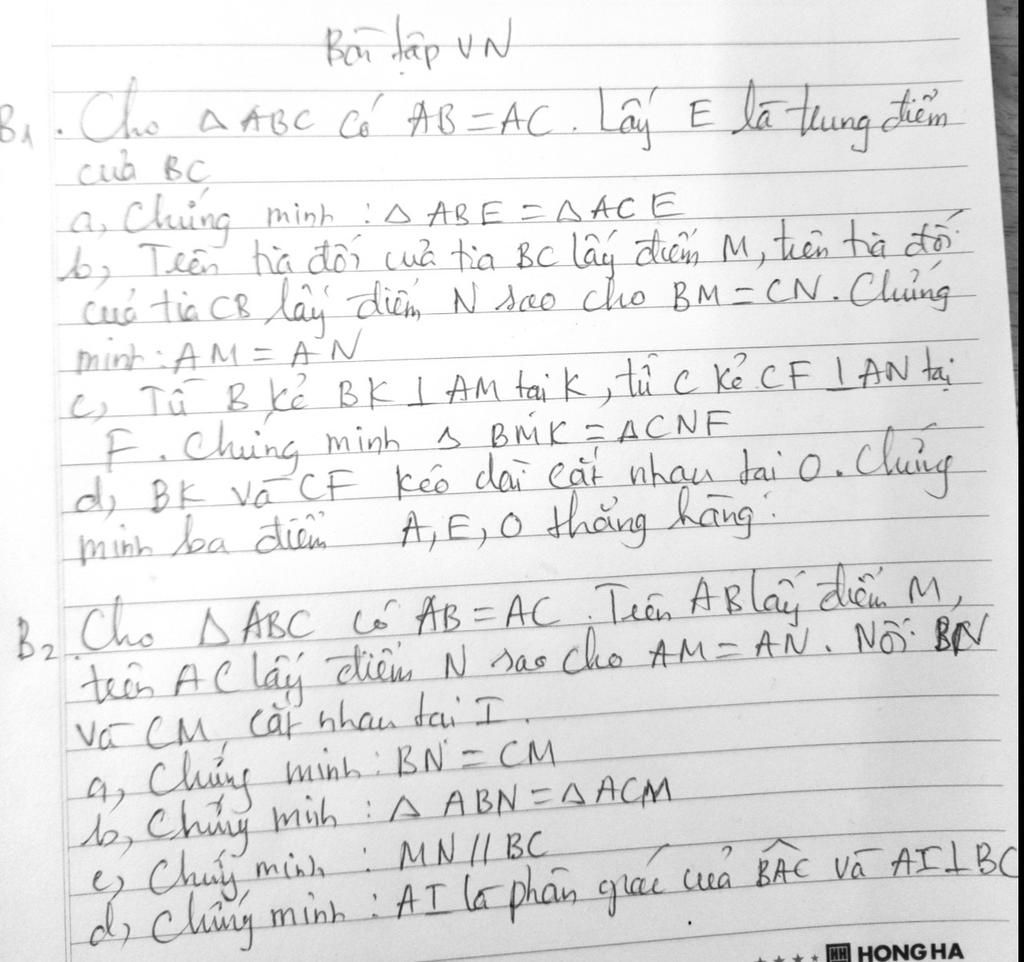 Bài tập VN
B1. Cho △ ABC có AB = AC. Lấy E là trung điểm
của BC
a, Chứng minh : △ ABE = △ ACE
b, Trên tia đối của tia BC lấy điểm M, trên tia đối
của tia CB lấy điểm N sao cho BM = CN. Chứng
minh : AM = AN
c, Từ B kẻ BK ⊥ AM tại K, từ C kẻ CF ⊥ AN tại
F. Chứng minh △ BMK = △CNF
d, BK và CF kéo dài cắt nhau tại O. Chứng
minh ba điểm A, E, O thẳng hàng.
B2. Cho △ ABC có AB = AC. Trên AB lấy điểm M,
trên AC lấy điểm N sao cho AM = AN. Nối BN
và CM, cắt nhau tại I.
a, Chứng minh : BN = CM
b, Chứng minh : △ ABN = △ ACM
c, Chứng minh : MN // BC
d, Chứng minh : AI là phân giác của BÂC và AI ⊥ BC
HONG HA